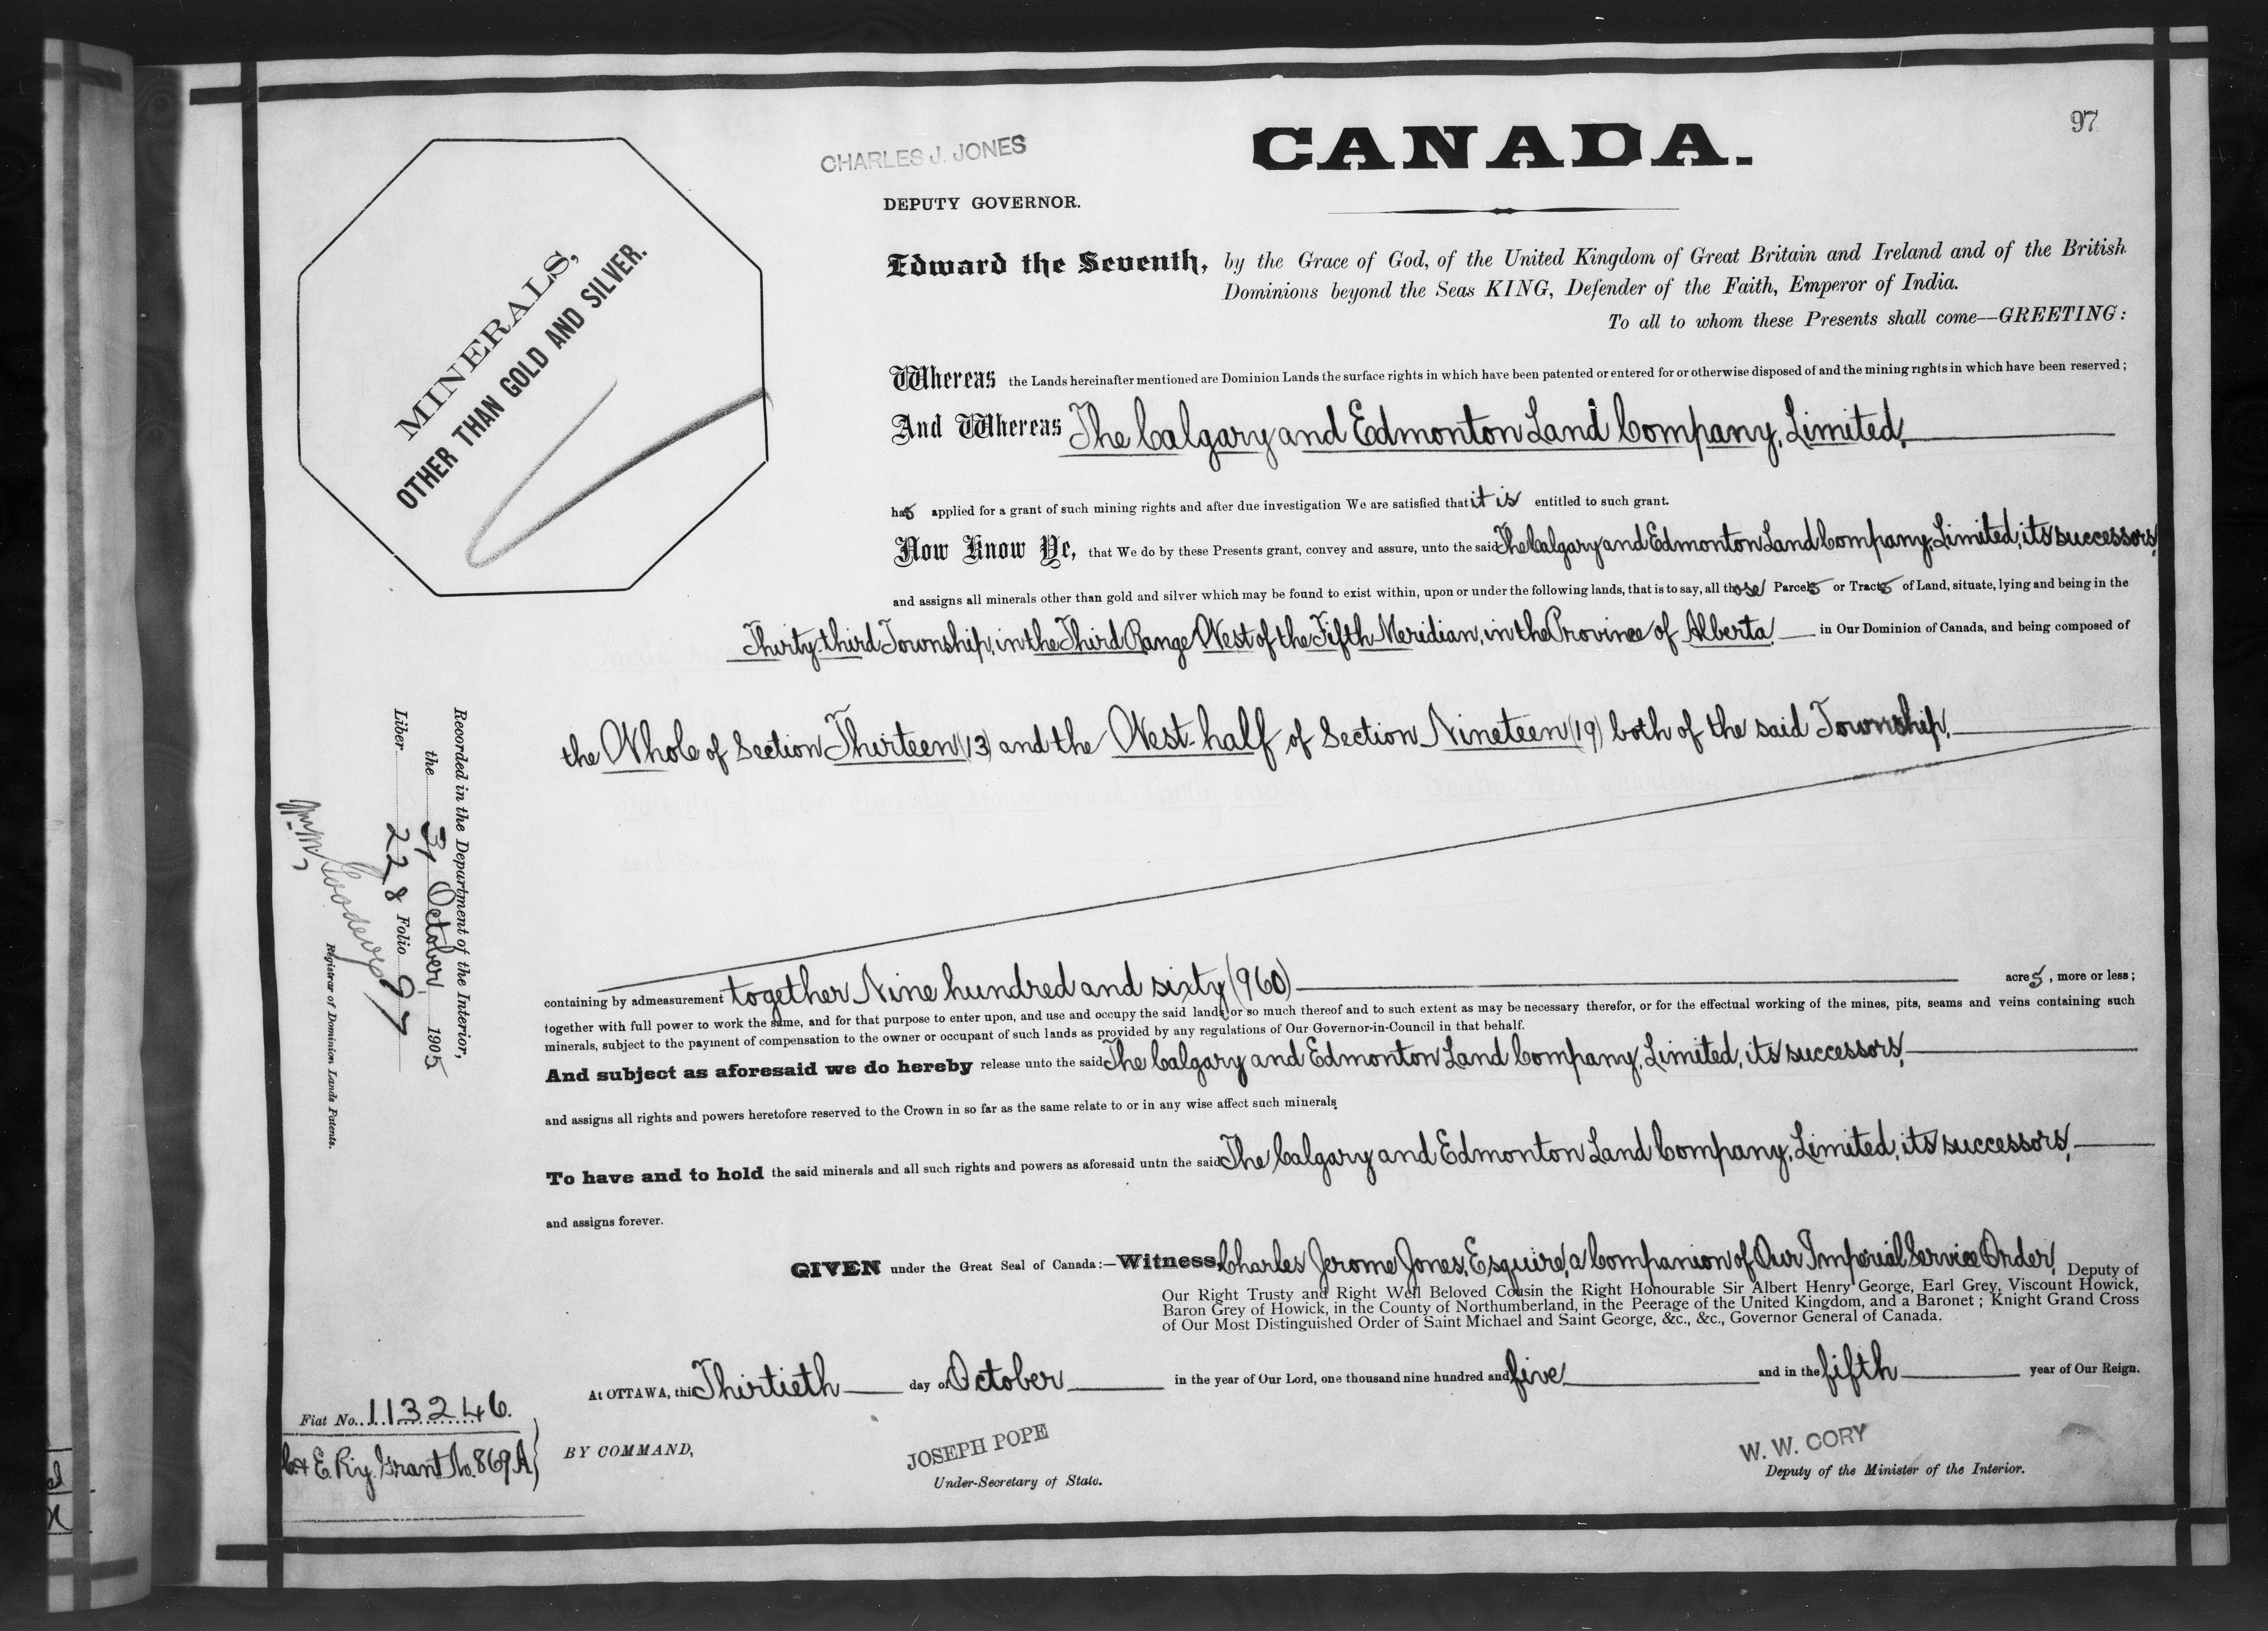 97
CHARLES J. JONES
CANADA.
DEPUTY GOVERNOR.
MINERALS,
OTHER THAN GOLD AND SILVER.
Edward the Seventh, by the Grace of God, of the United Kingdom of Great Britain and Ireland and of the British
Dominions beyond the Seas KING, Defender of the Faith, Emperor of India.
To all to whom these Presents shall come—GREETING:
Whereas the Lands hereinafter mentioned are Dominion Lands the surface rights in which have been patented or entered for or otherwise disposed of and the mining rights in which have been reserved;
And Whereas The Calgary and Edmonton Land Company, Limited,
has applied for a grant of such mining rights and after due investigation We are satisfied that it is entitled to such grant.
Now Know Ye, that We do by these Presents grant, convey and assure, unto the said The Calgary and Edmonton Land Company, Limited, its successors,
and assigns all minerals other than gold and silver which may be found to exist within, upon or under the following lands, that is to say, all those Parcels or Tracts of Land, situate, lying and being in the
Thirty-third Township, in the Third Range West of the Fifth Meridian, in the Province of Alberta, in Our Dominion of Canada, and being composed of
the Whole of Section Thirteen (13) and the West-half of Section Nineteen (19) both of the said Township,
containing by admeasurement together Nine hundred and sixty (960) acres, more or less;
together with full power to work the same, and for that purpose to enter upon, and use and occupy the said lands or so much thereof and to such extent as may be necessary therefor, or for the effectual working of the mines, pits, seams and veins containing such
minerals, subject to the payment of compensation to the owner or occupant of such lands as provided by any regulations of Our Governor-in-Council in that behalf.
And subject as aforesaid we do hereby release unto the said The Calgary and Edmonton Land Company, Limited, its successors,
and assigns all rights and powers heretofore reserved to the Crown in so far as the same relate to or in any wise affect such minerals
To have and to hold the said minerals and all such rights and powers as aforesaid untn the said The Calgary and Edmonton Land Company, Limited, its successors,
and assigns forever.
GIVEN under the Great Seal of Canada:—Witness, Charles Jerome Jones, Esquire, a Companion of Our Imperial Service Order, Deputy of
Our Right Trusty and Right Well Beloved Cousin the Right Honourable Sir Albert Henry George, Earl Grey, Viscount Howick,
Baron Grey of Howick, in the County of Northumberland, in the Peerage of the United Kingdom, and a Baronet; Knight Grand Cross
of Our Most Distinguished Order of Saint Michael and Saint George, &c., &c., Governor General of Canada.
At OTTAWA, this Thirtieth day of October in the year of Our Lord, one thousand nine hundred and five and in the fifth year of Our Reign.
BY COMMAND,
JOSEPH POPE
Under-Secretary of State.
W. W. CORY
Deputy of the Minister of the Interior.
Recorded in the Department of the Interior,
the 31 October 1905
Liber 228 Folio 97
Registrar of Dominion Lands Patents.
Fiat No. 113246.
C. & E. Ry. Grant No. 869A